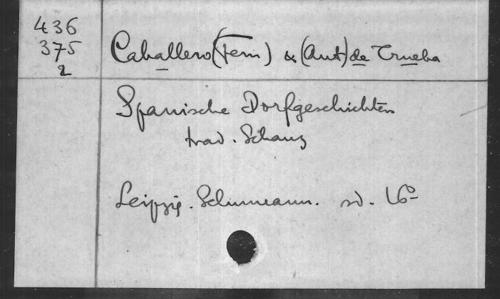 436
375
2
Caballero (Fern) & (Ant) de Trueba
Spanische Dorfgeschichten
trad. Schanz
Leipzig. Schumann. sd. 16°